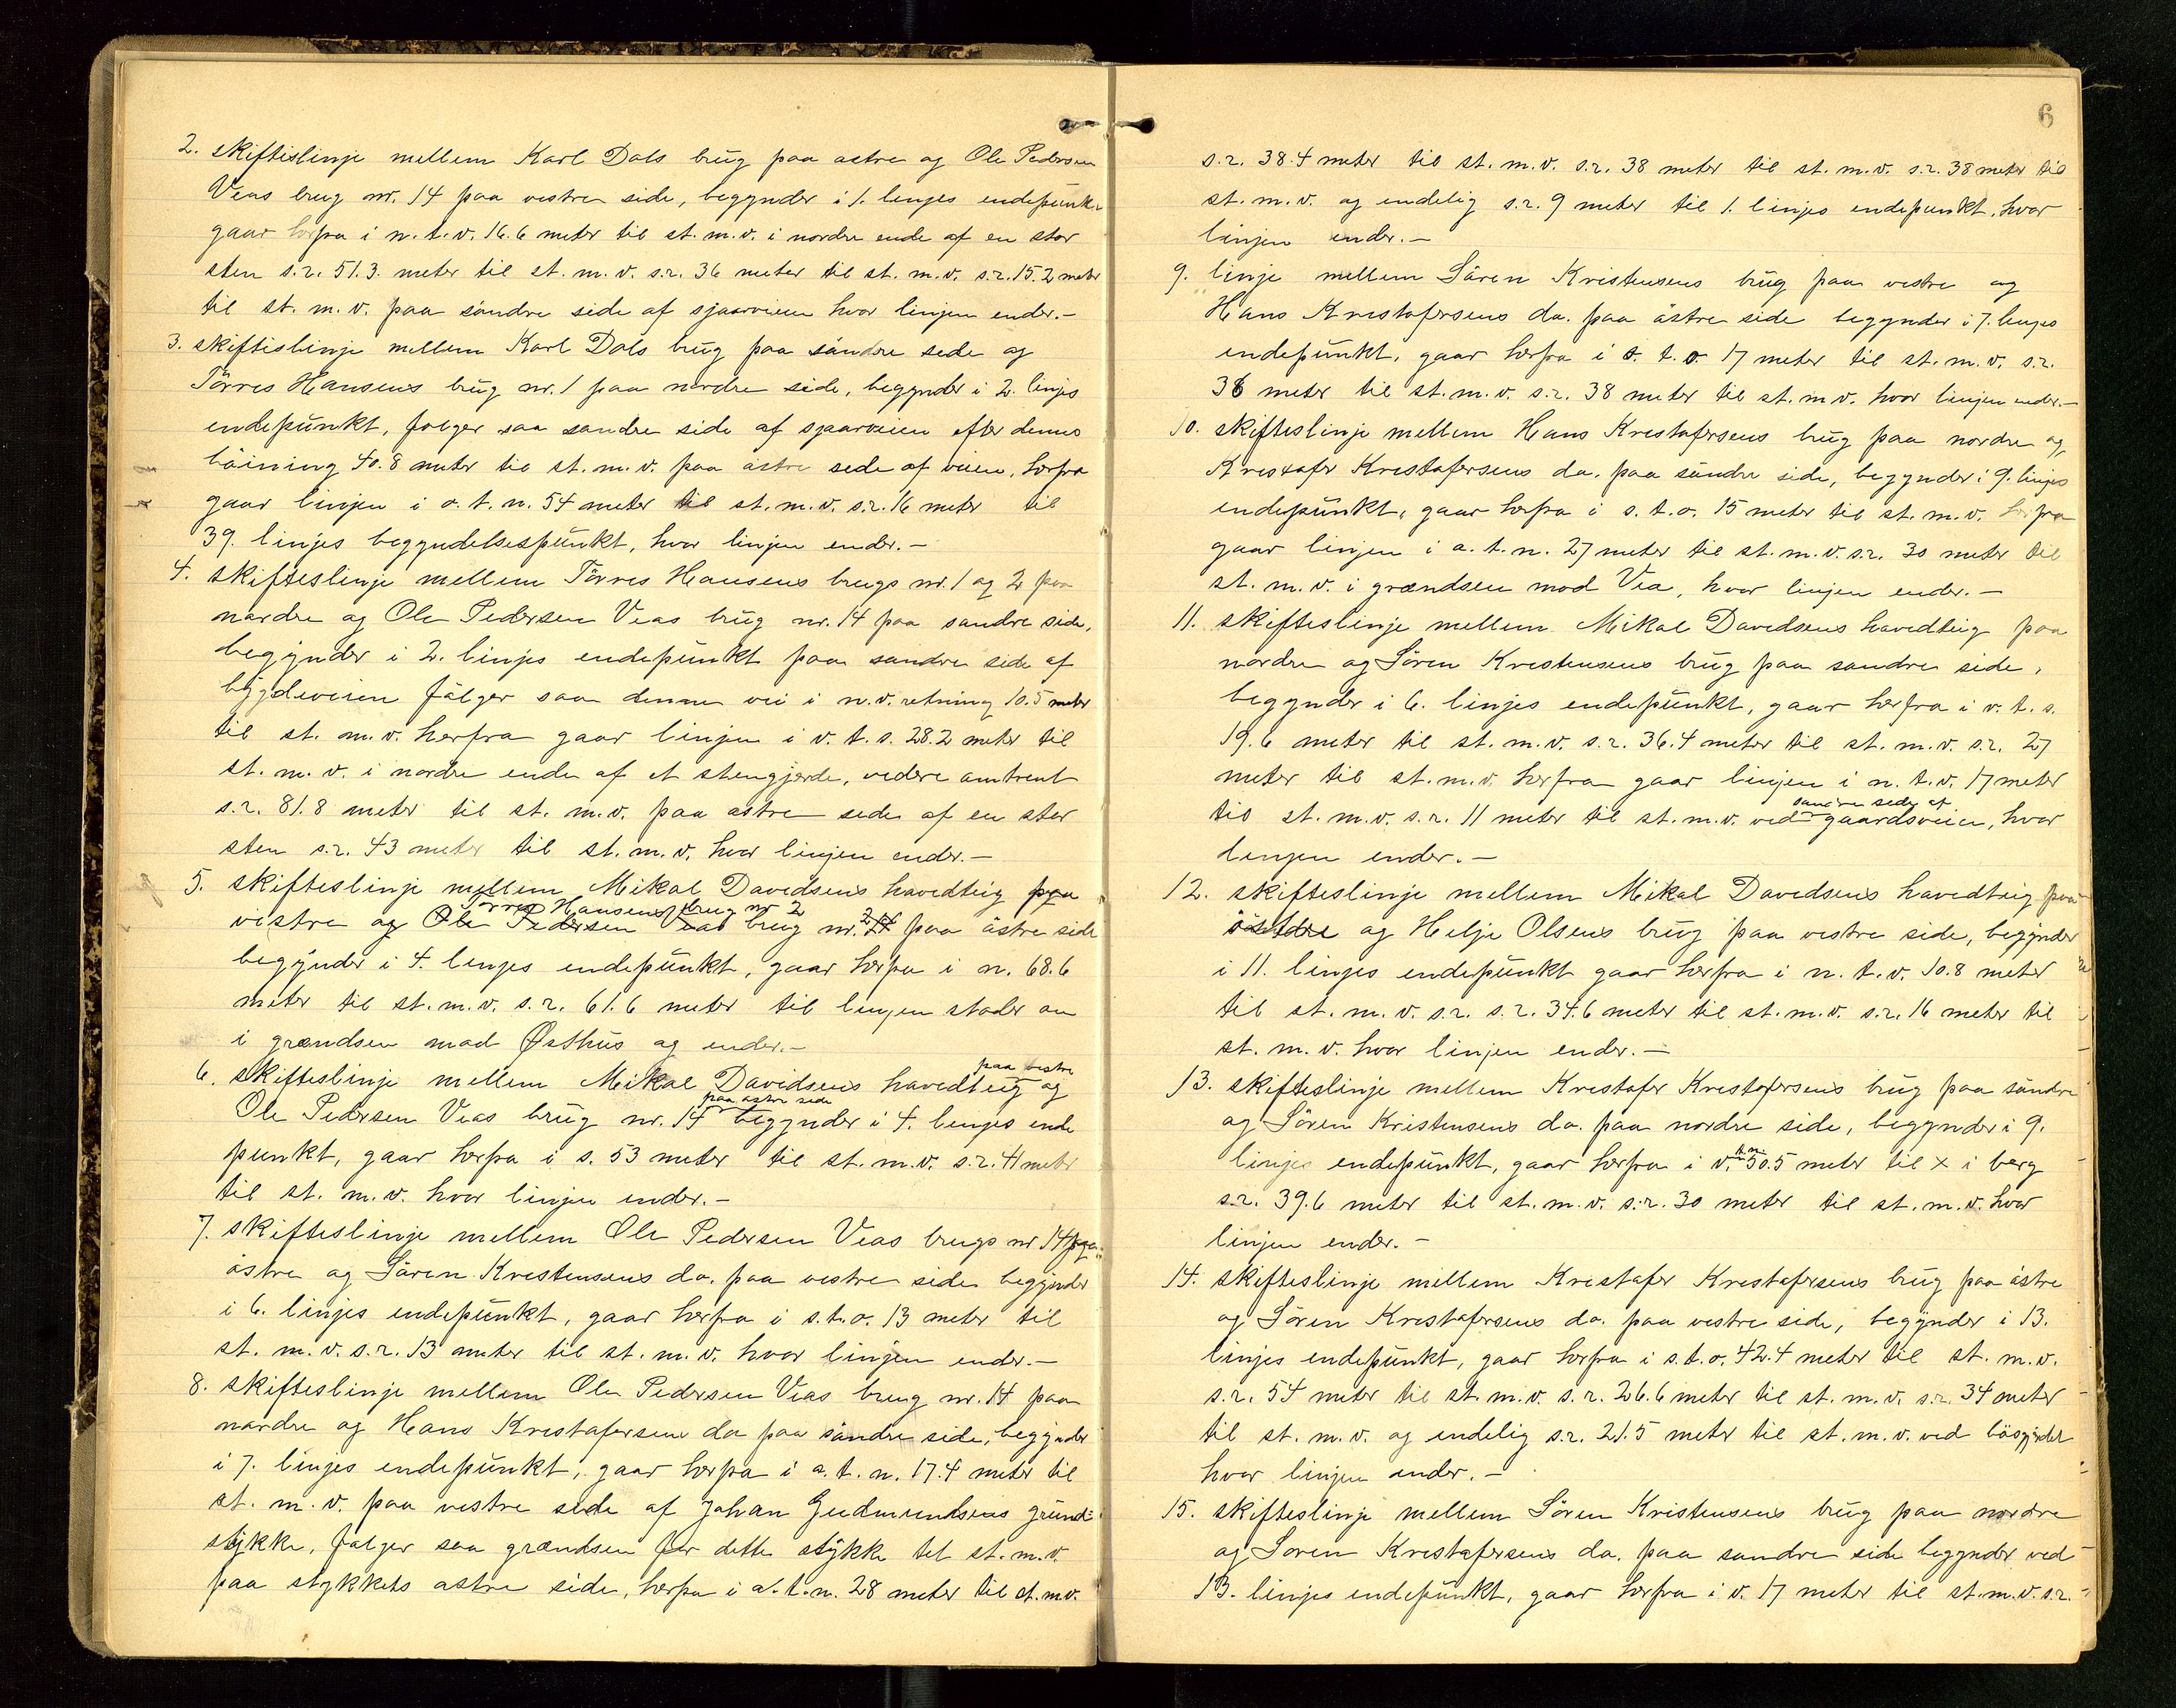 2. skiftislinje mellem Karl Dals brug paa østre og Ole Pedersen
Veas brug nr. 14 paa vestre side, begynder i 1. linjes endepunkt
gaar herfra i n. t. v. 16.6 meter til st. m. v. i nordre ende af en stor
sten s.r. 51.3. meter til st. m. v. s.r. 36 meter til st. m. v. s.r. 15.2 meter
til st. m. v. paa söndre side af sjaaveien hvor linjen ender.-
3. skiftislinje mellem Karl Dals brug paa söndre side og
Törres Hansens brug nr. 1 paa nordre side, begynder i 2. linjes
endepunkt, følger saa søndre side af sjaaveien efter dennes
böining 40.8 meter til st. m. v. paa östre side af veien, herfra
gaar linjen i o. t. n. 54 meter til st. m. v. s.r. 16 meter til
39. linjes begyndelsespunkt, hvor linjen ender.-
4. skifteslinje mellem Törres Hansens brugs nr. 1 og 2 paa
nordre og Ole Pedersen Veas brug nr. 14 paa søndre side,
begynder i 2. linjes endepunkt paa søndre side af
bygdeveien fölger saa denne vei i n.v. retning 10.5 meter
til st. m. v. herfra gaar linjen i v. t. s. 28.2 meter til
st. m. v. i nordre ende af et stengjerde, videre omtrent
s.r. 81.8 meter til st. m. v. paa østre side af en stor
sten s.r. 43 meter til st. m. v. hvor linjen ender.-
5. skifteslinje mellem Mikal Davidsens havedteig paa
Törres Hansens brug nr 2
vestre og Ole Pedersen Veas brug nr. 2 14 paa östre side
begynder i 4. linjes endepunkt, gaar herfra i n. 68.6
meter til st. m. v. s.r. 61.6 meter til linjen stöder an
i grændsen mod Østhus og ender.-
paa vestre
6. skifteslinje mellem Mikal Davidsens havedteig og
paa östre side
Ole Pedersen Veas brug nr. 14 begynder i 4. linjes ende
punkt, gaar herfra i s. 53 meter til st. m. v. s.r. 41 meter
til st. m. v. hvor linjen ender.-
7. skifteslinje mellem Ole Pedersen Veas brugs nr 14 paa
östre og Sören Kristensens do. paa vestre side begynder
i 6. linjes endepunkt, gaar herfra i s.t.o. 13 meter til
st. m. v. s.r. 13 meter til st. m. v. hvor linjen ender.-
8. skifteslinje mellem Ole Pedersen Veas brug nr. 14 paa
nordre og Hans Kristofersens do paa söndre side, begynder
i 7. linjes endepunkt, gaar herfra i o. t. n. 17.4 meter til
st. m. v. paa vestre side af Johan Gudmundsens grund-
stykke, følger saa grændsen for dette stykke til st. m.v.
paa stykkets østre side, herfra i o. t. n. 28 meter til st. m.v.
6
s.r. 38.4 meter til st. m. v. s.r. 38 meter til st. m. v. s.r. 38 meter til
st. m. v. og endelig s.r. 9 meter til 1. linjes endepunkt, hvor
linjen ender.-
9. linje mellem Sören Kristensens brug paa vestre og
Hans Kristofersens do. paa östre side begynder i 7. linjes
endepunkt, gaar herfra i s. t. o. 17 meter til st. m. v. s.r.
36 meter til st. m. v. s.r. 38 meter til st. m v. hvor linjen ender.-
10. skifteslinje mellem Hans Kristofersens brug paa nordre og
Kristofer Kristofersens do. paa söndre side, begynder i 9. linjes
endepunkt, gaar herfra i s. t. o. 15 meter til st. m. v. herfra
gaar linjen i o. t. n. 27 meter til st. m. v. s.r. 30 meter til
st. m. v. i grændsen mod Vea, hvor linjen ender.-
11. skifteslinje mellem Mikal Davidsens havedteig paa
nordre og Sören Kristensens brug paa søndre side,
begynder i 6. linjes endepunkt, gaar herfra i v. t. s.
19.6 meter til st. m. v. s.r. 36.4 meter til st. m. v. s.r. 27
meter til st. m. v. herfra gaar linjen i n. t. v. 17 meter
söndre side af
til st. m. v. s.r. 11 meter til st. m. v. ved gaardsveien, hvor
linjen ender.-
12. skifteslinje mellem Mikal Davidsens havedteig paa
östre og Helje Olsens brug paa vestre side, begynder
i 11. linjes endepunkt gaar herfra i n. t. v. 10.8 meter
til st. m. v. s.r. s.r. 34.6 meter til st. m. v. s.r. 16 meter til
st. m. v. hvor linjen ender.-
13. skifteslinje mellem Kristofer Kristofersens brug paa söndre
og Sören Kristensens do. paa nordre side, begynder i 9.
linjes endepunkt, gaar herfra i v. t. n. 50.5 meter til x i berg
s.r. 39.6 meter til st. m. v. s.r. 30 meter til st. m. v. hvor
linjen ender.-
14. skifteslinje mellem Kristofer Kristofersens brug paa östre
og Sören Kristofersens do. paa vestre side, begynder i 13.
linjes endepunkt, gaar herfra i s. t. o. 42.4 meter til st. m. v.
s.r. 54 meter til st. m. v. s.r. 26.6 meter til st. m. v. s.r. 34 meter
til st. m. v. og endelig s.r. 21.5 meter til st. m. v. ved bögjerdet
hvor linjen ender.-
15. skifteslinje mellem Sören Kristensens brug paa nordre
og Sören Kristofersens do. paa søndre side begynder ved
13. linjes endepunkt, gaar herfra i v. 17 meter til st. m. v. s.r.